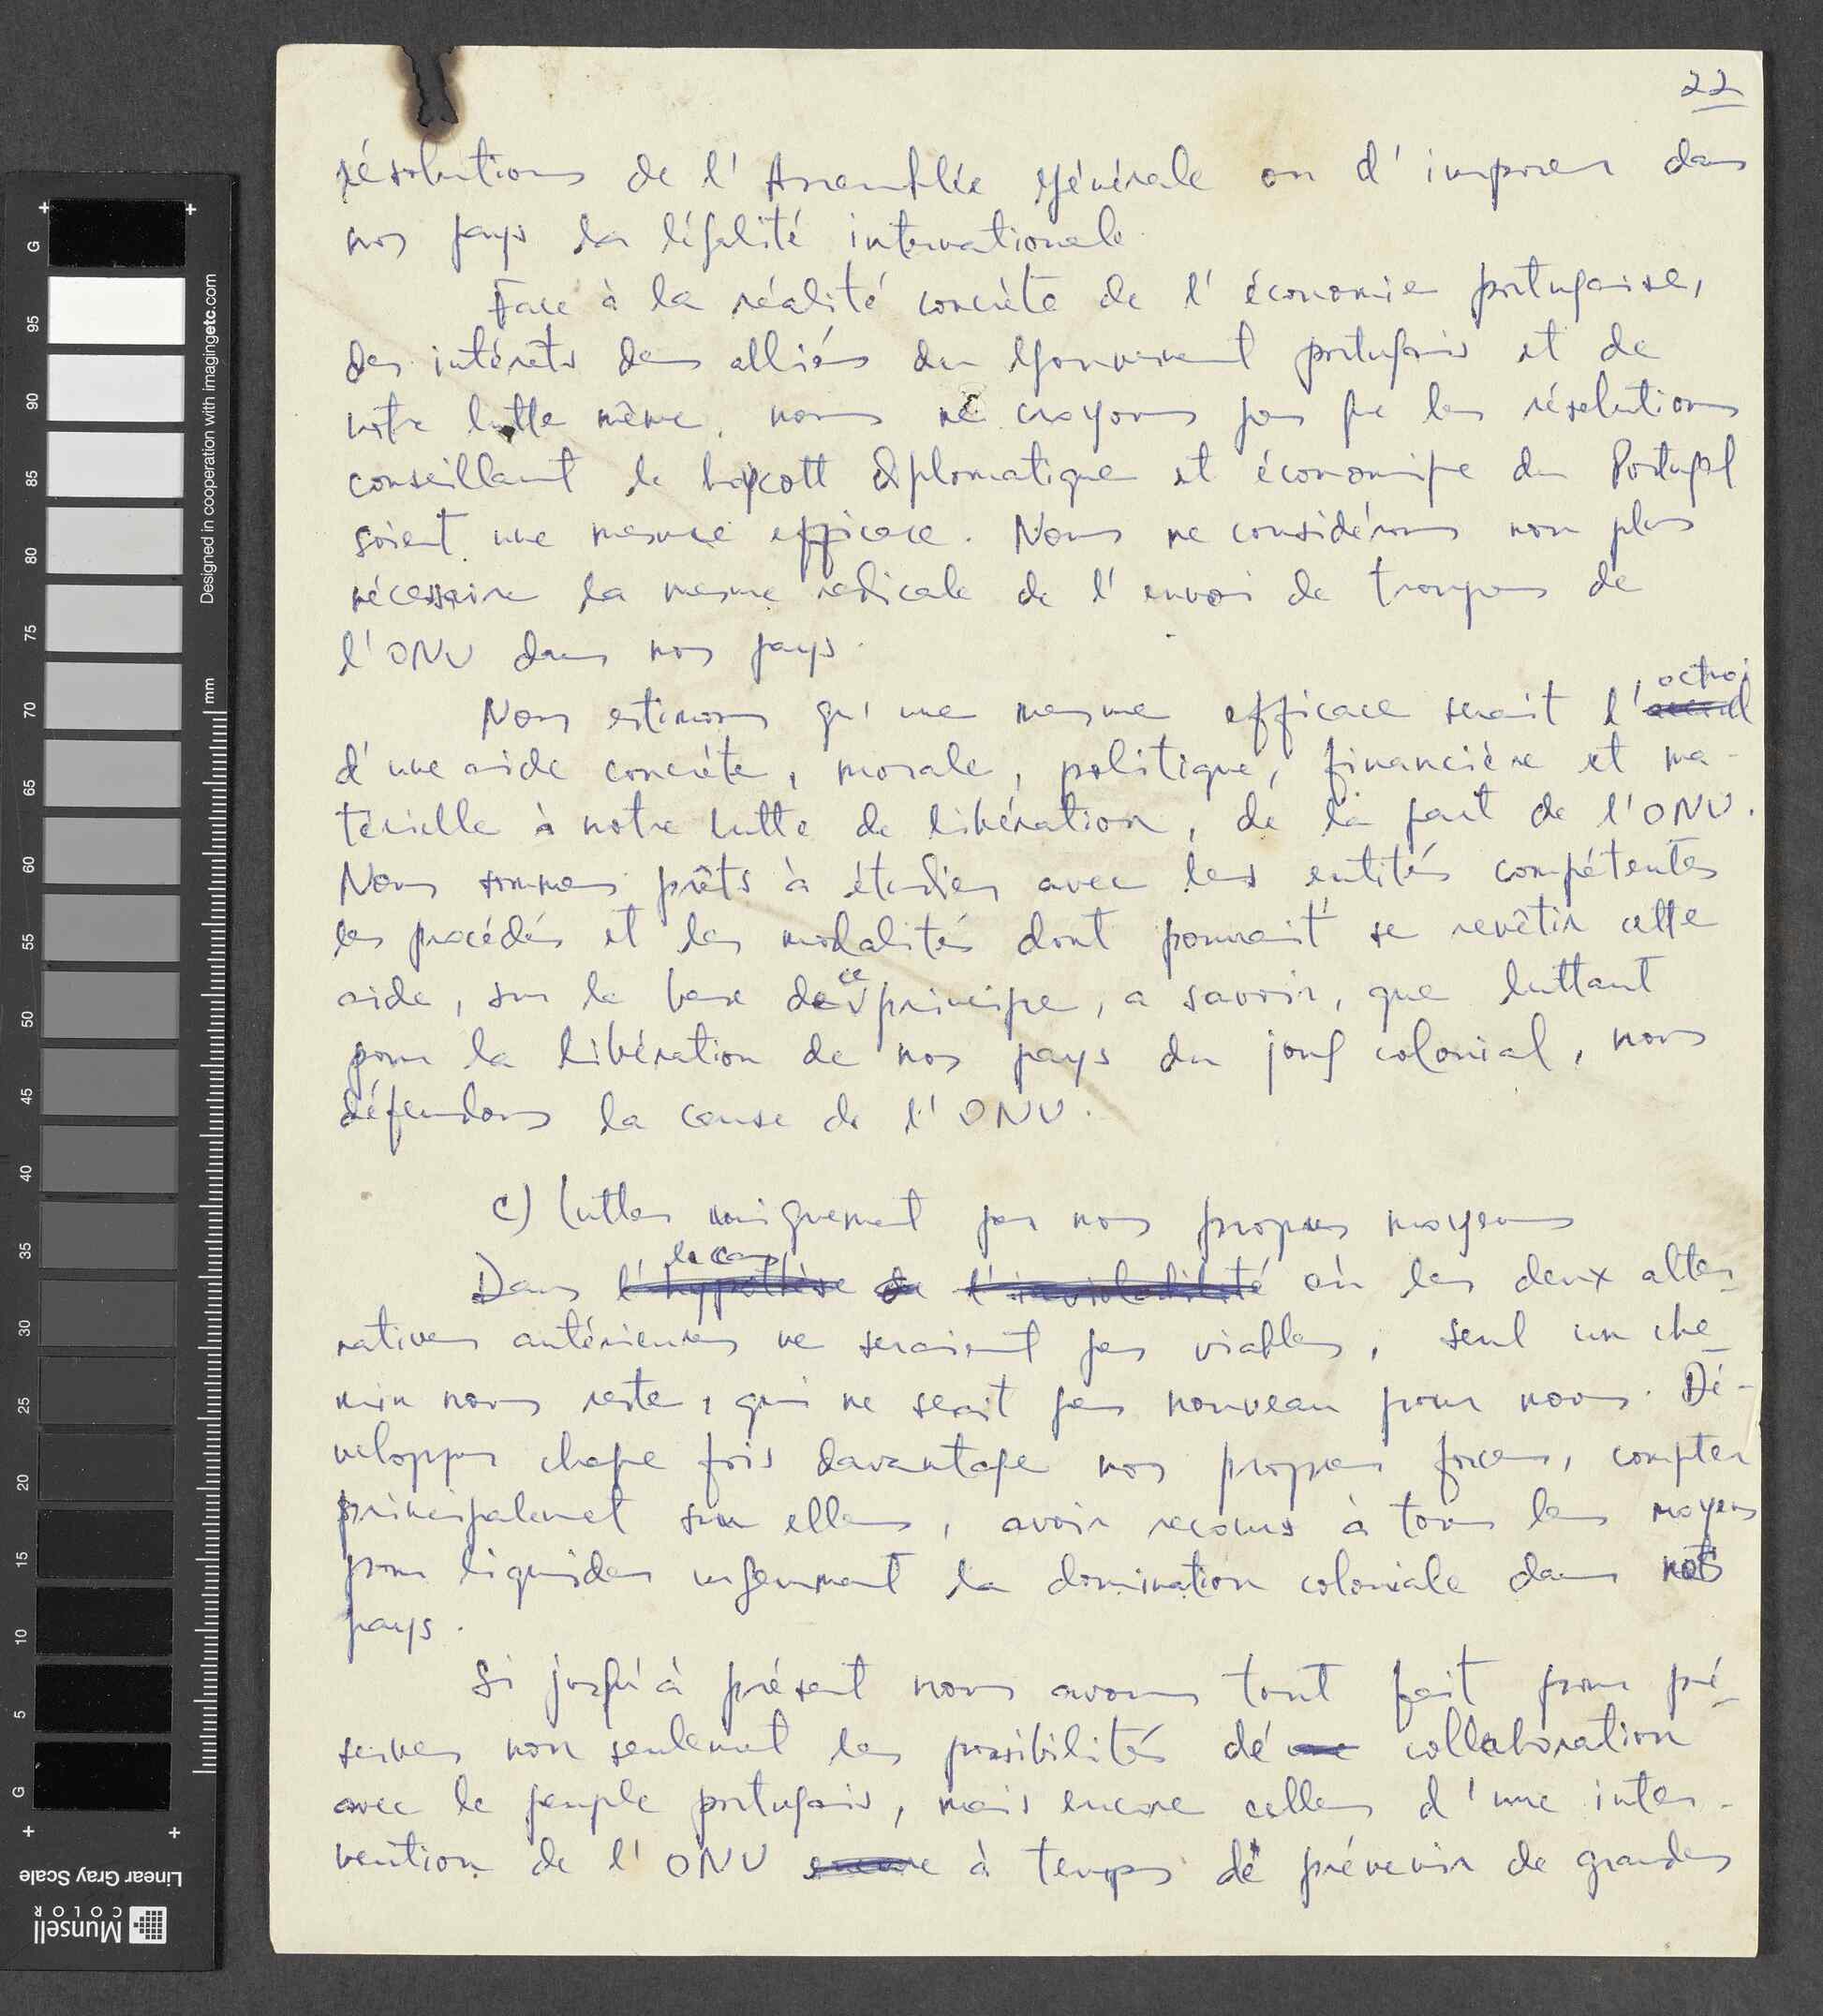 22
résolutions de l'Assemblée Générale ou d'imposer dans
nos pays la légalité internationale.
Face à la réalité concrète de l'économie portugaise,
des intérêts des alliés du Gouvernement portugais et de
notre lutte même, nous ne croyons pas que les résolutions
conseillant le boycott diplomatique et économique du Portugal
soient une mesure efficace. Nous ne considérons non plus
nécessaire la mesure radicale de l'envoi de troupes de
l'ONU dans nos pays.
octroi
Nous estimons qu'une mesure efficace serait l'
d'une aide concrète, morale, politique, financière et ma-
térielle à notre lutte de libération, de la part de l'ONU.
Nous sommes prêts à étudier avec les entités compétentes
les procédés et les modalités dont pourrait se revêtir cette
ce
aide, sur la base de principe, a savoir, que luttant
pour la libération de nos pays du joug colonial, nous
défendons la cause de l'ONU.
c) lutter uniquement par nos propres moyens
le cas
Dans l'hypothèse de l'inviolabilité où les deux alter-
natives antérieures ne seraient pas viables, seul un che-
min nous reste, qui ne serait pas nouveau pour nous. Dé-
velopper chaque fois davantage nos propres forces, compter
principalement sur elles, avoir recours à tous les moyens
pour liquider urgemment la domination coloniale dans nos
pays.
Si jusqu'à présent nous avons tout fait pour pré-
server non seulement les possibilités de collaboration
avec le peuple portugais, mais encore celles d'une inter-
vention de l'ONU encore à temps de prévenir de grandes
Designed in cooperation with imagingetc.com
mm
G
95
90
85
80
75
70
65
60
55
50
45
40
35
30
25
20
15
10
5
G
Linear Gray Scale
Munsell
COLOR